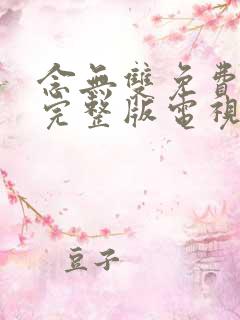 念無雙免費
完整版電視
豆子